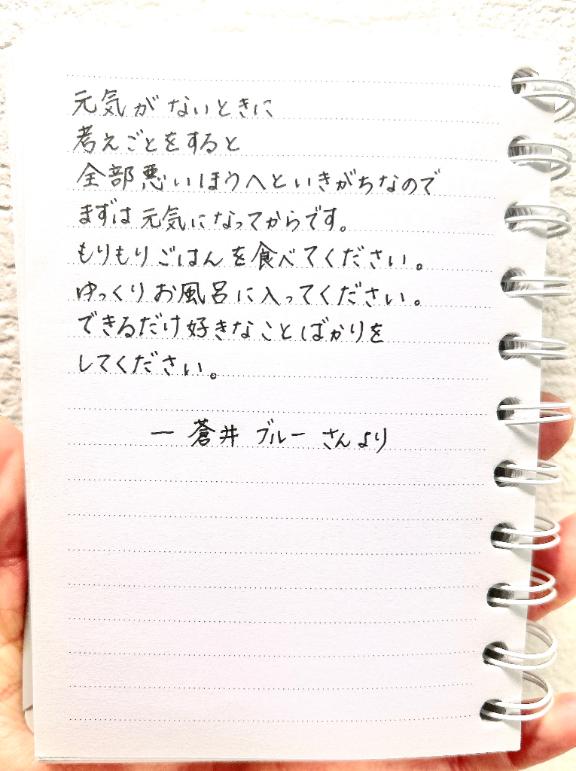 元気がないときに
考えごとをすると
全部悪いほうへといきがちなので
まずは元気になってからです。
もりもりごはんを食べてください。
ゆっくりお風呂に入ってください。
できるだけ好きなことばかりを
してください。
― 蒼井 ブルー さんより